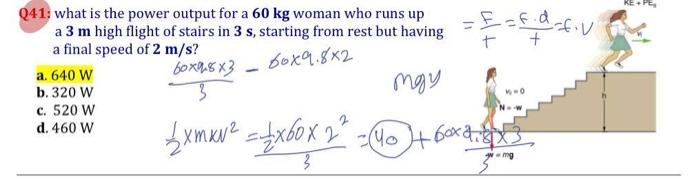 Q41: what is the power output for a 60 kg woman who runs up
a 3 m high flight of stairs in 3 s, starting from rest but having
a final speed of 2 m/s?
a. 640 W
b. 320 W
c. 520 W
d. 460 W
60x9.8x3 / 3 - 60x9.8x2
mgy
1/2 xmxv² = 1/2 x60x2² / 3 = 40 + 60x9.8x3 / 3
= F/t = F.d/t = F.V
KE + PEg
Vi = 0
N = -w
h
w = mg